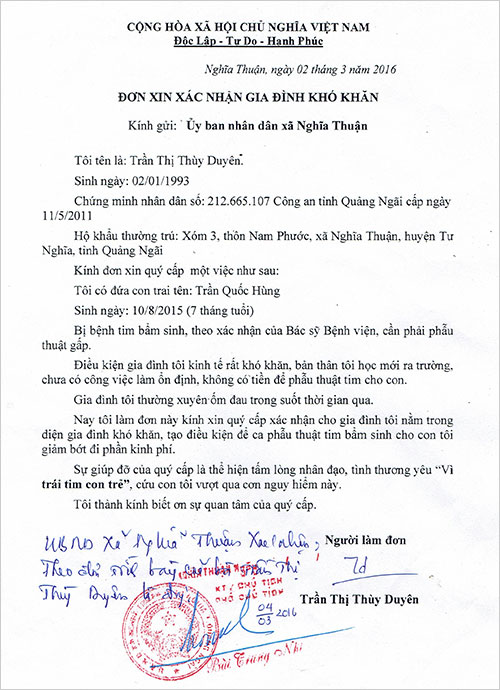 CỘNG HÒA XÃ HỘI CHỦ NGHĨA VIỆT NAM
Độc Lập - Tự Do - Hạnh Phúc
Nghĩa Thuận, ngày 02 tháng 3 năm 2016
ĐƠN XIN XÁC NHẬN GIA ĐÌNH KHÓ KHĂN
Kính gửi: Ủy ban nhân dân xã Nghĩa Thuận
Tôi tên là: Trần Thị Thùy Duyên.
Sinh ngày: 02/01/1993
Chứng minh nhân dân số: 212.665.107 Công an tỉnh Quảng Ngãi cấp ngày
11/5/2011
Hộ khẩu thường trú: Xóm 3, thôn Nam Phước, xã Nghĩa Thuận, huyện Tư
Nghĩa, tỉnh Quảng Ngãi
Kính đơn xin quý cấp một việc như sau:
Tôi có đứa con trai tên: Trần Quốc Hùng
Sinh ngày: 10/8/2015 (7 tháng tuổi)
Bị bệnh tim bẩm sinh, theo xác nhận của Bác sỹ Bệnh viện, cần phải phẫu
thuật gấp.
Điều kiện gia đình tôi kinh tế rất khó khăn, bản thân tôi học mới ra trường,
chưa có công việc làm ổn định, không có tiền để phẫu thuật tim cho con.
Gia đình tôi thường xuyên ốm đau trong suốt thời gian qua.
Nay tôi làm đơn này kính xin quý cấp xác nhận cho gia đình tôi nằm trong
diện gia đình khó khăn, tạo điều kiện để ca phẫu thuật tim bẩm sinh cho con tôi
giảm bớt đi phần kinh phí.
Sự giúp đỡ của quý cấp là thể hiện tấm lòng nhân đạo, tình thương yêu “Vì
trái tim con trẻ”, cứu con tôi vượt qua cơn nguy hiểm này.
Tôi thành kính biết ơn sự quan tâm của quý cấp.
UBND xã Nghĩa Thuận xác nhận;
Người làm đơn
Theo
Thùy Duyên
KT/ CHỦ TỊCH
PHÓ CHỦ TỊCH
04
03 2016
Trần Thị Thùy Duyên
Bùi Trung Nhi